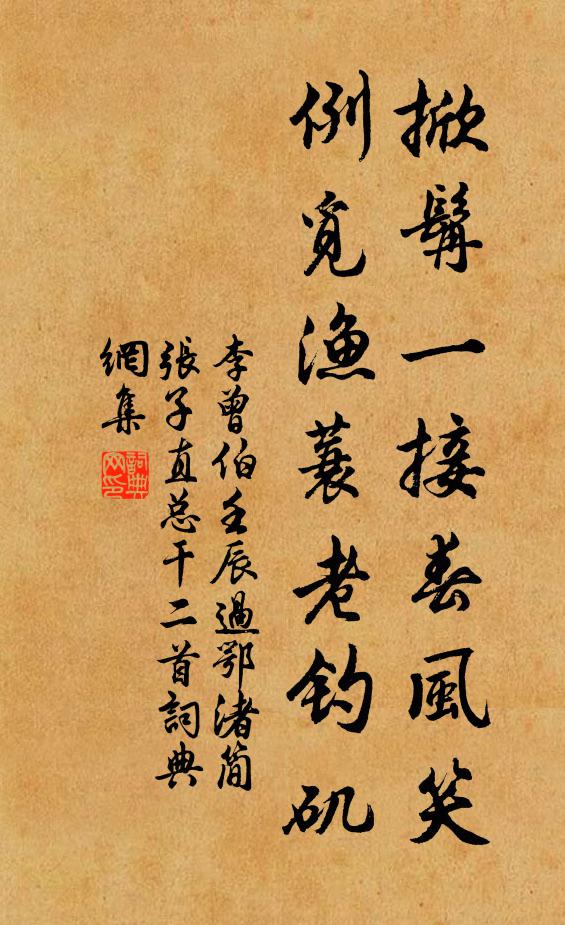 掀髯一接春風笑
例覓漁蓑老釣矶
李曾伯壬辰過鄂渚簡
張子直总干二首詞典
網集
詞典
网印